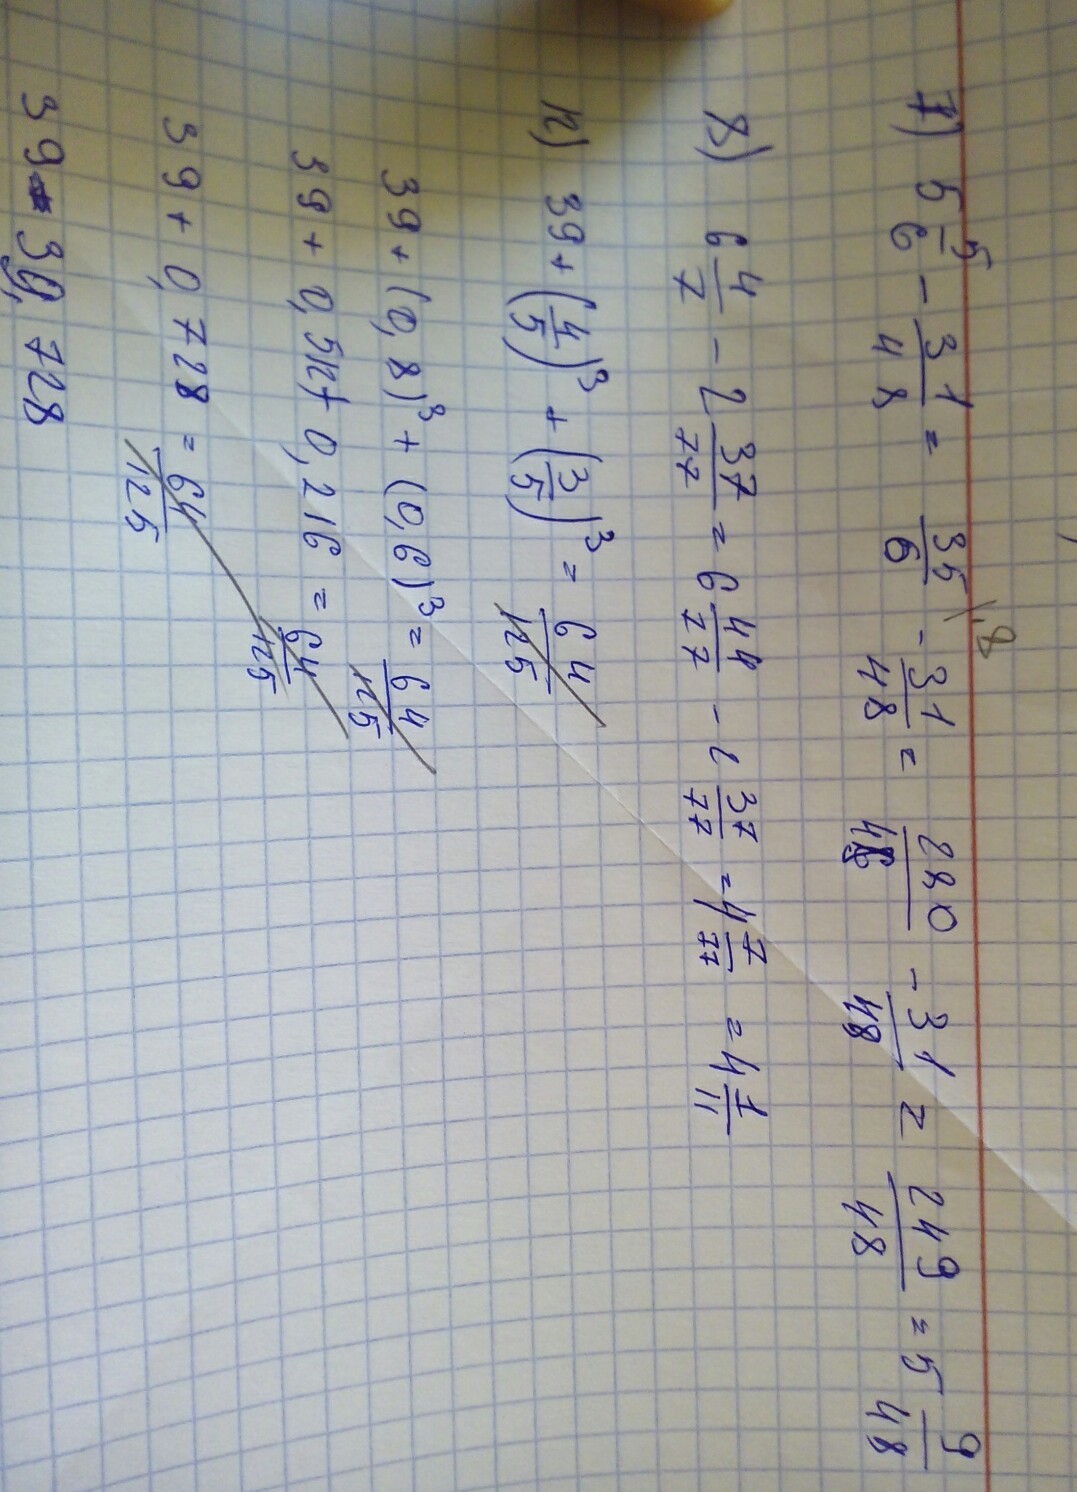 7) 5 5/6 - 31/48 = 35/6 \8 - 31/48 = 280/48 - 31/48 = 249/48 = 5 9/48
8) 6 4/7 - 2 37/77 = 6 44/77 - 2 37/77 = 4 7/77 = 4 1/11
12) 39 + (4/5)³ + (3/5)³ = 64/125
39 + (0,8)³ + (0,6)³ = 64/125
39 + 0,512 + 0,216 = 64/125
39 + 0,728 = 64/125
39 39,728